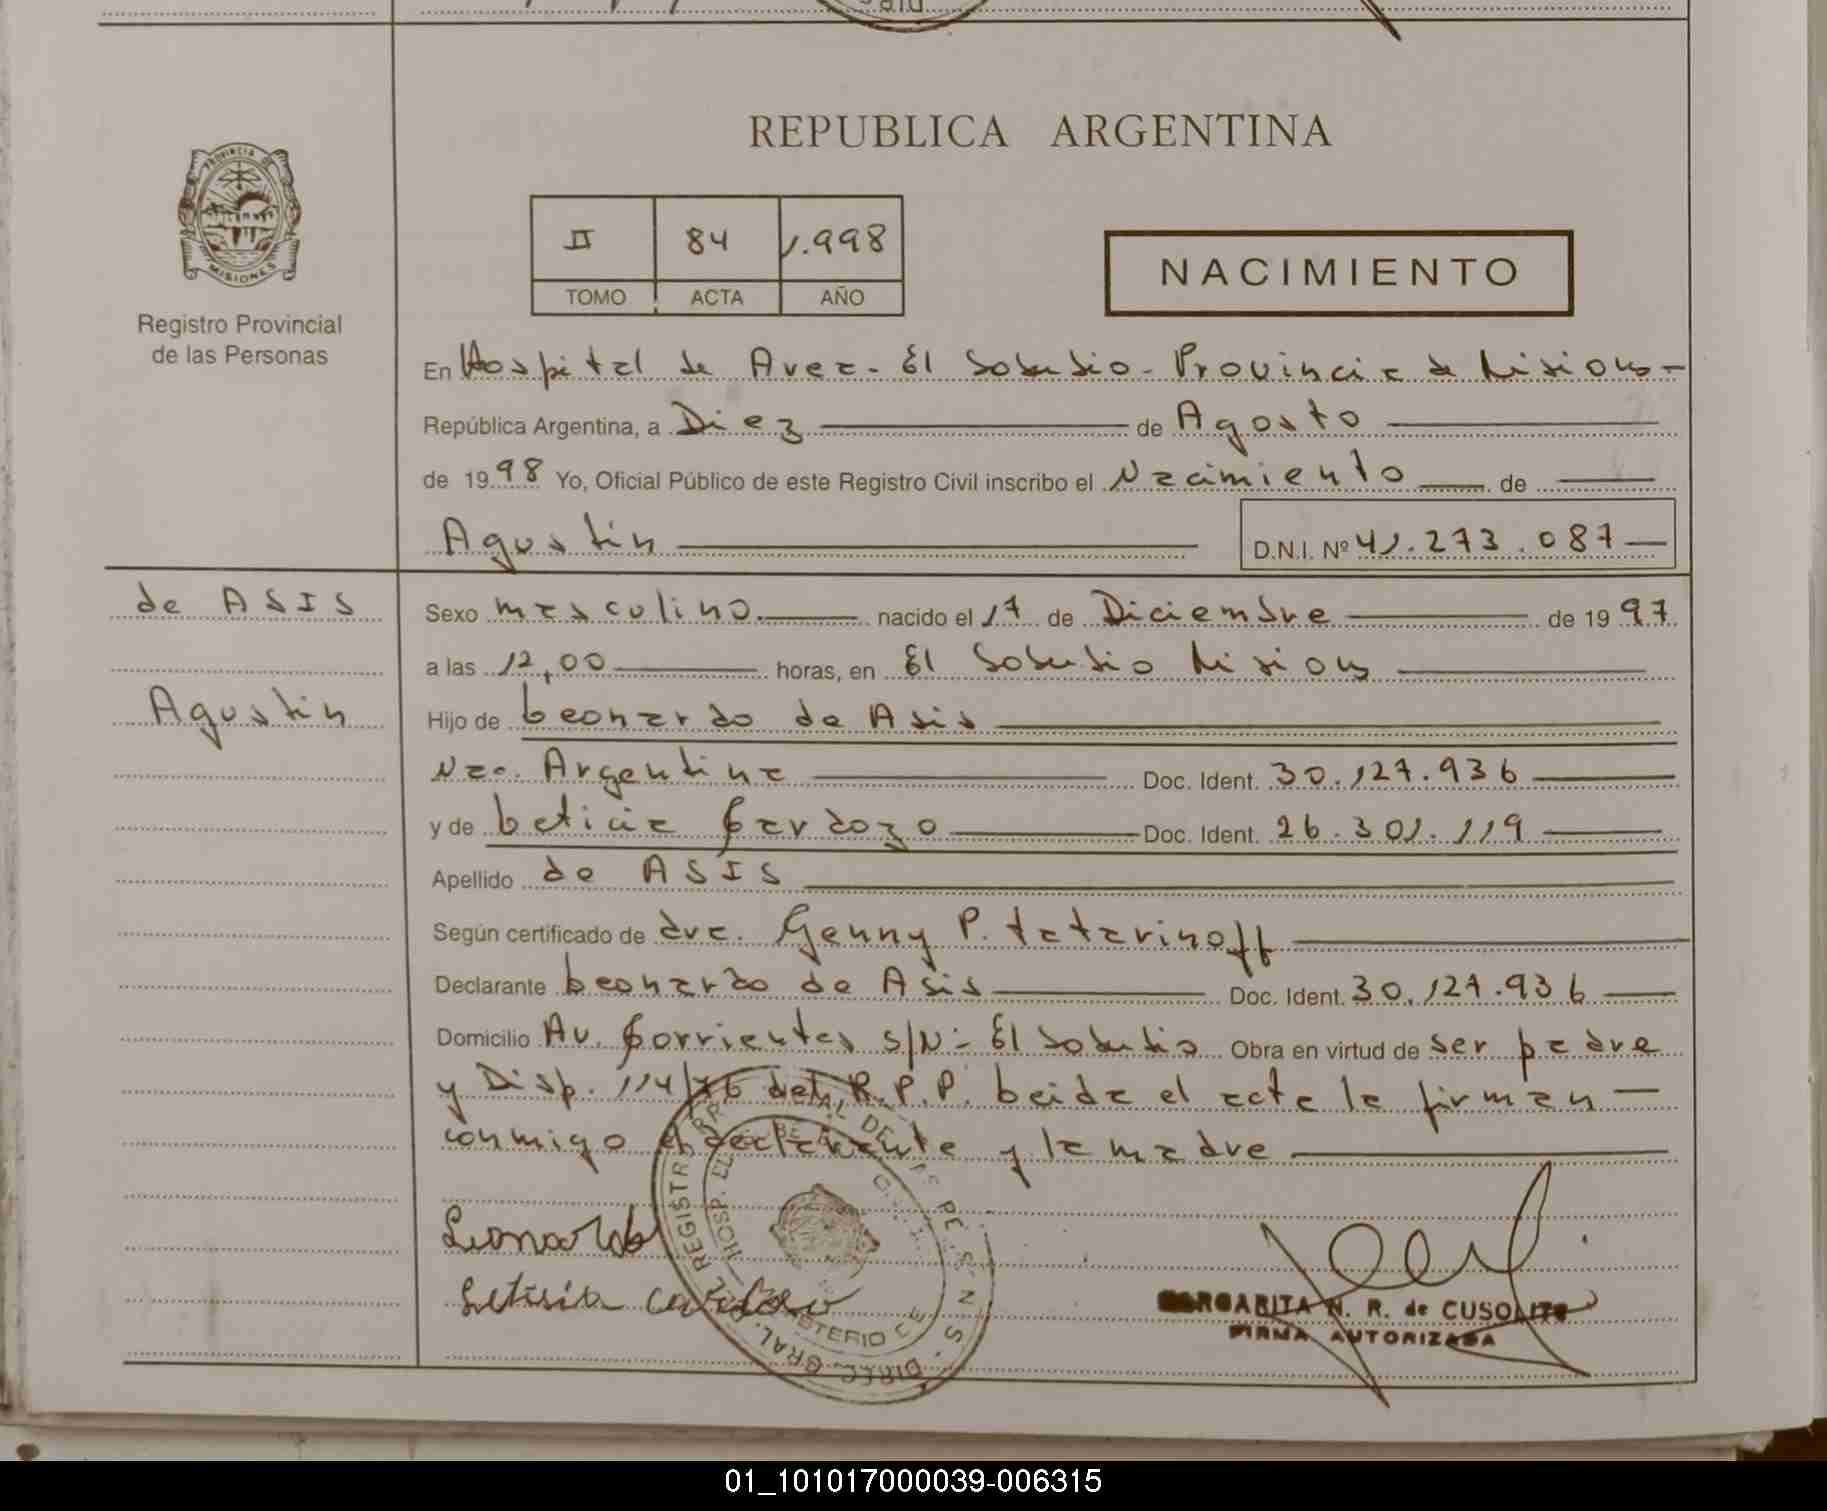 REPUBLICA ARGENTINA
PROVINCIA DE
MISIONES
Registro Provincial
de las Personas
II 84 1.998
TOMO ACTA AÑO
NACIMIENTO
En Hospital de Area - El Soberbio - Provincia de Misiones -
República Argentina, a Diez de Agosto
de 1998 Yo, Oficial Público de este Registro Civil inscribo el Nacimiento de
Agustin D.N.I. Nº 41.273.087
de ASIS
Agustin
Sexo masculino. nacido el 17 de Diciembre de 1997
a las 12,00 horas, en El Soberbio Misiones
Hijo de Leonardo de Asis
Nac. Argentina Doc. Ident. 30.127.936
y de Leticia Cardozo Doc. Ident. 26.301.119
Apellido de ASIS
Según certificado de dra. Genny P. Tatarinoff
Declarante Leonardo de Asis Doc. Ident. 30.127.936
Domicilio Av. Corrientes S/N - El Soberbio Obra en virtud de ser padre
y Disp. 114/76 del R.P.P. Leida el acta la firman
conmigo el declarante y la madre
Leonardo
Letisia Cardozo
MARGARITA N. R. de CUSOLITO
FIRMA AUTORIZADA
01_101017000039-006315